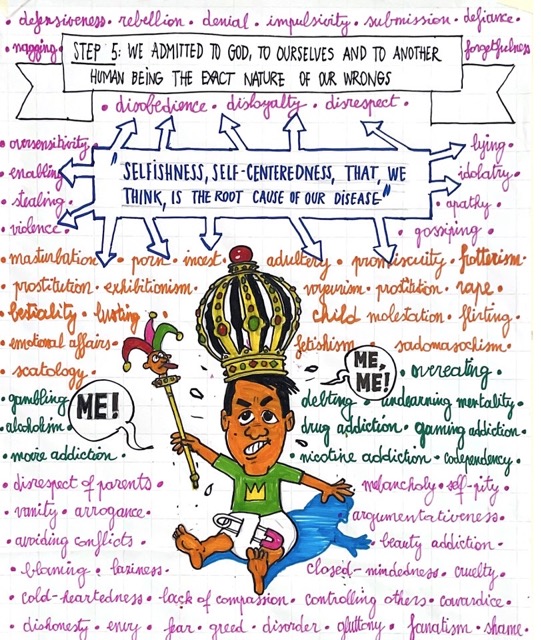 defensiveness • rebellion • denial • impulsivity • submission • defiance •
• nagging
STEP 5: WE ADMITTED TO GOD, TO OURSELVES AND TO ANOTHER
forgetfulness
HUMAN BEING THE EXACT NATURE OF OUR WRONGS
• disobedience • disloyalty • disrespect •
• oversensitivity
lying •
• enabling
"SELFISHNESS, SELF-CENTEREDNESS, THAT, WE
idolatry •
• stealing
THINK, IS THE ROOT CAUSE OF OUR DISEASE"
• apathy •
violence •
• gossiping •
• masturbation • porn • incest • adultery • promiscuity • frotterism •
• prostitution • exhibitionism •
voyeurism • prostitution • rape •
bestiality • lusting •
child molestation • flirting •
• emotional affairs •
fetishism • sadomasochism •
• scatology •
ME, ME!
• overeating
• gambling
ME!
debting • underearning mentality •
• alcoholism
drug addiction • gaming addiction •
movie addiction •
nicotine addiction • codependency •
• disrespect of parents •
melancholy • self-pity •
• vanity • arrogance •
argumentativeness •
• avoiding conflicts •
• beauty addiction •
• blaming • laziness •
closed-mindedness • cruelty •
• cold-heartedness • lack of compassion • controlling others • cowardice •
• dishonesty • envy • fear • greed • disorder • gluttony • fanatism • shame •